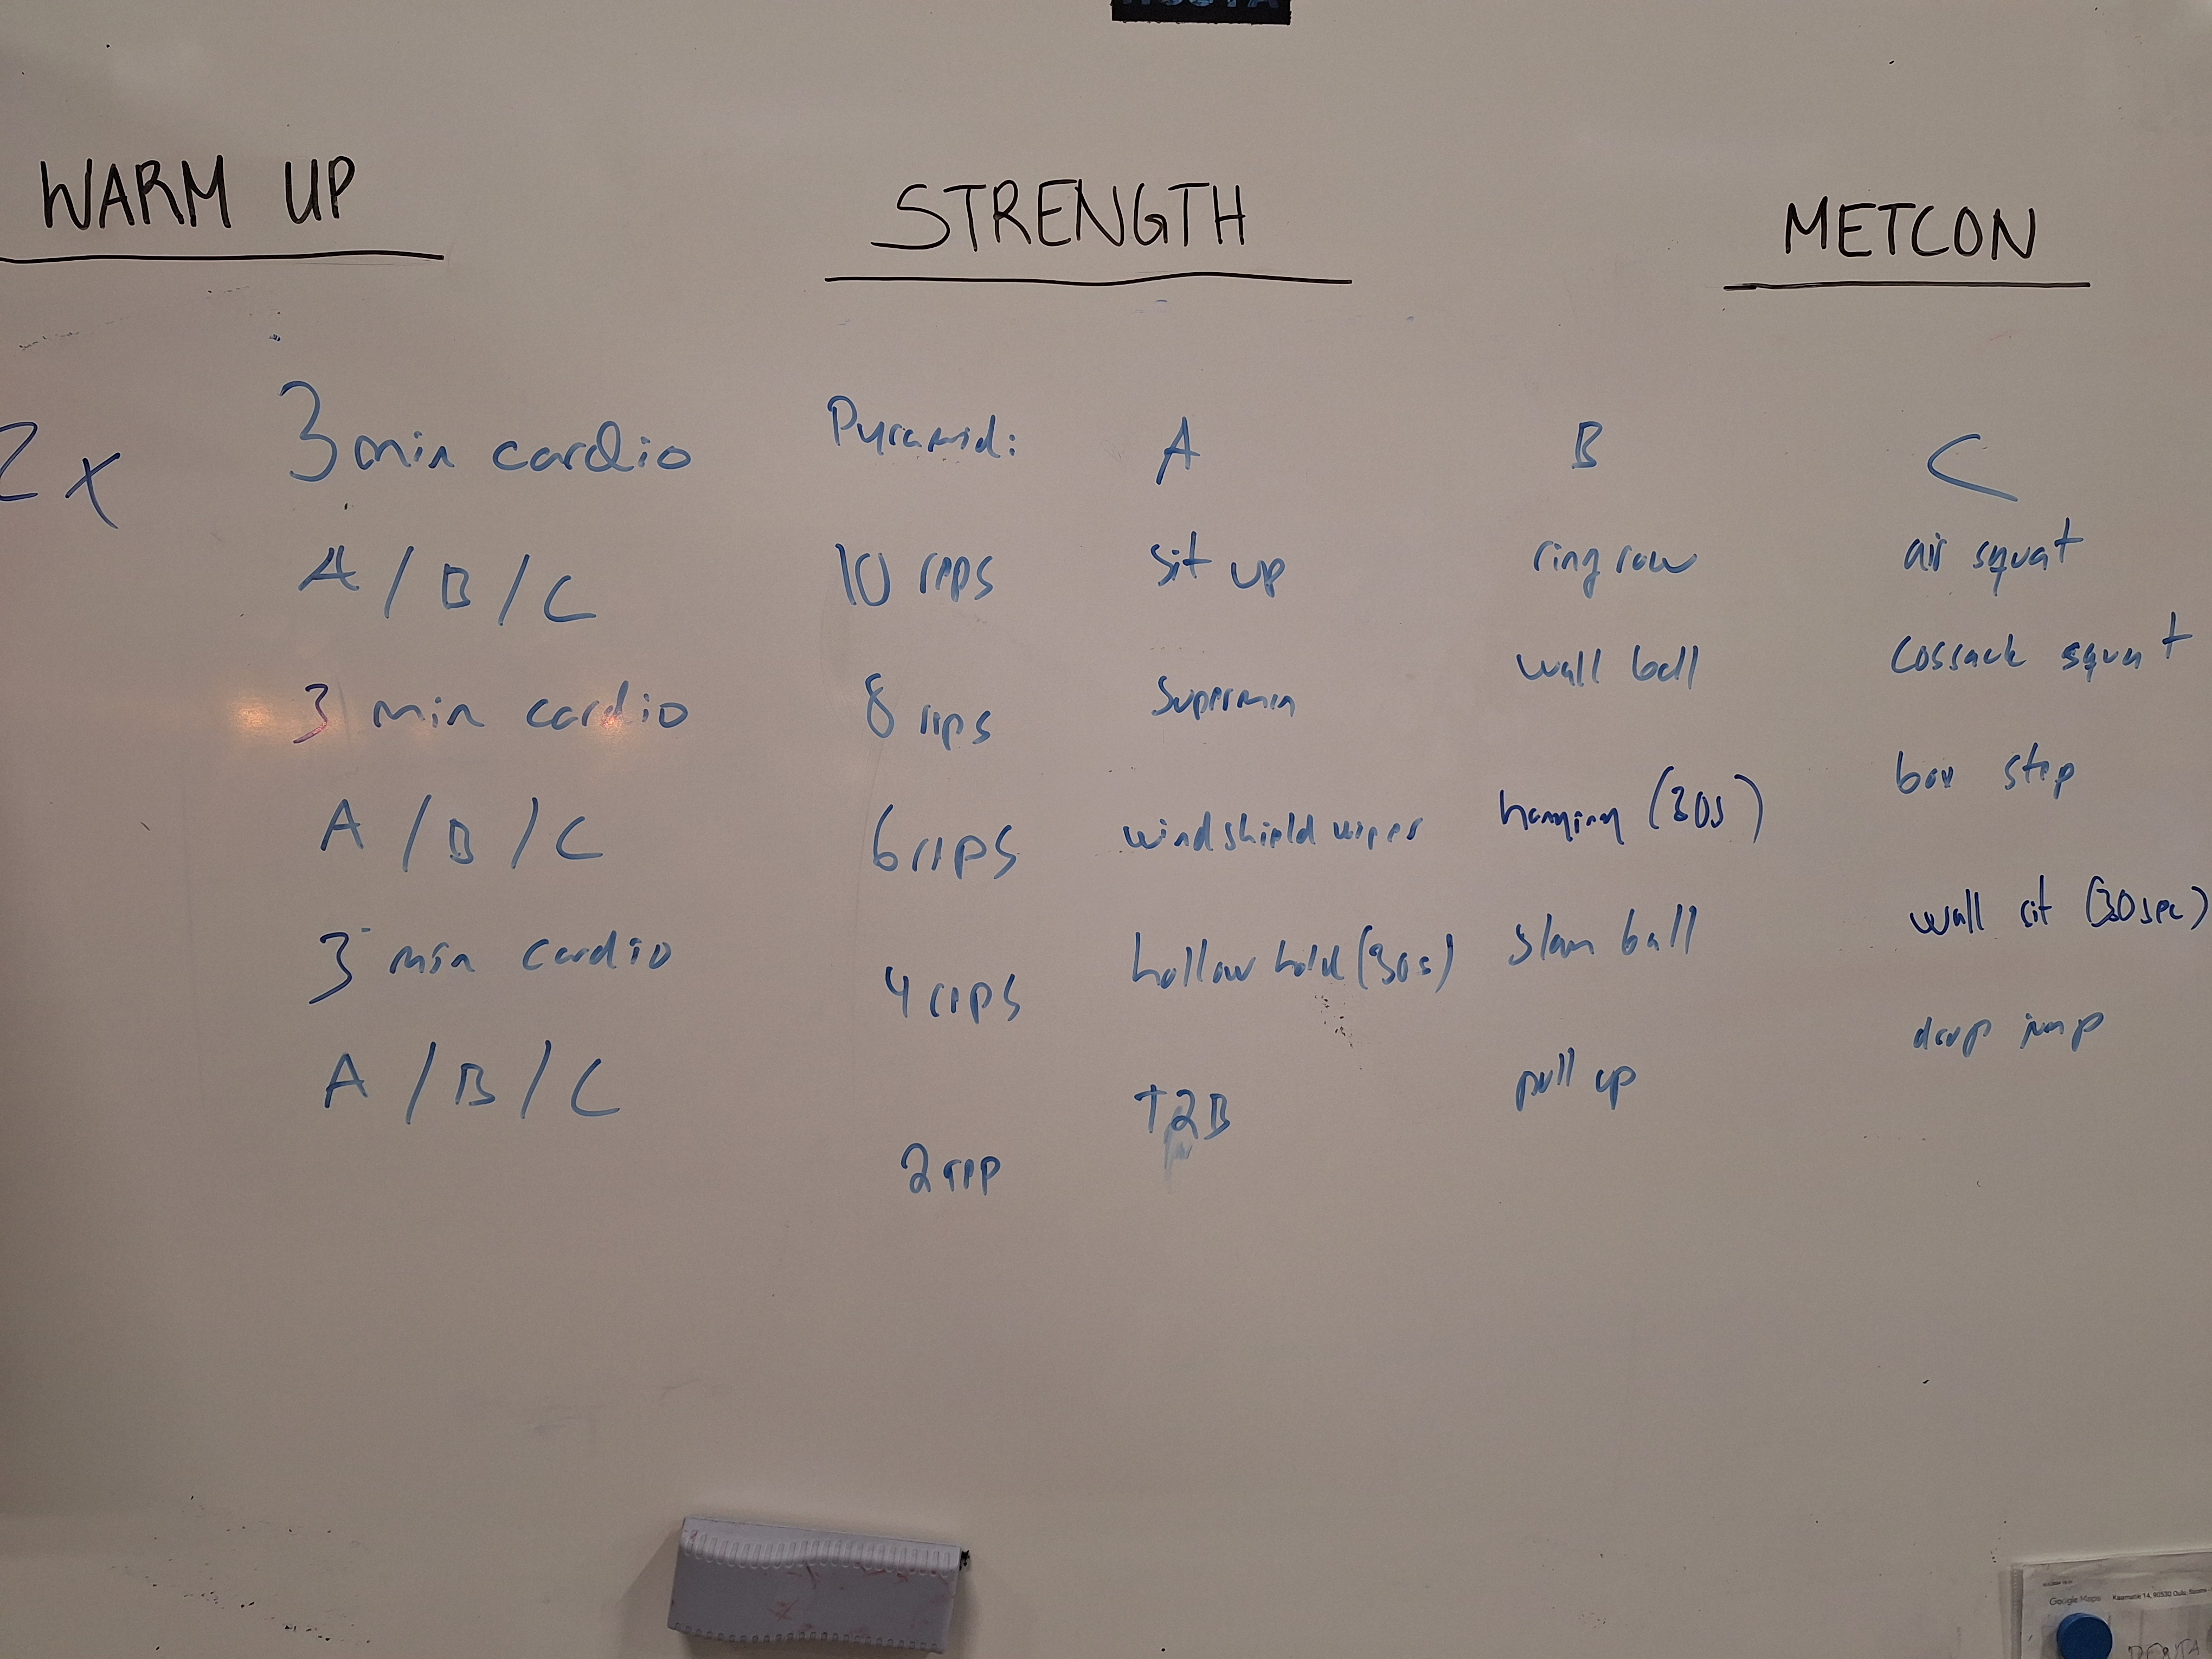 WARM UP
STRENGTH
METCON
2x
3 min cardio
A / B / C
3 min cardio
A / B / C
3 min cardio
A / B / C
Pyramid:
10 reps
8 reps
6 reps
4 reps
2 rep
A
sit up
Superman
windshield wiper
hollow hold (30s)
T2B
B
ring row
wall ball
hanging (30s)
slam ball
pull up
C
air squat
cossack squat
box step
wall sit (30sec)
drop jump
Google Maps